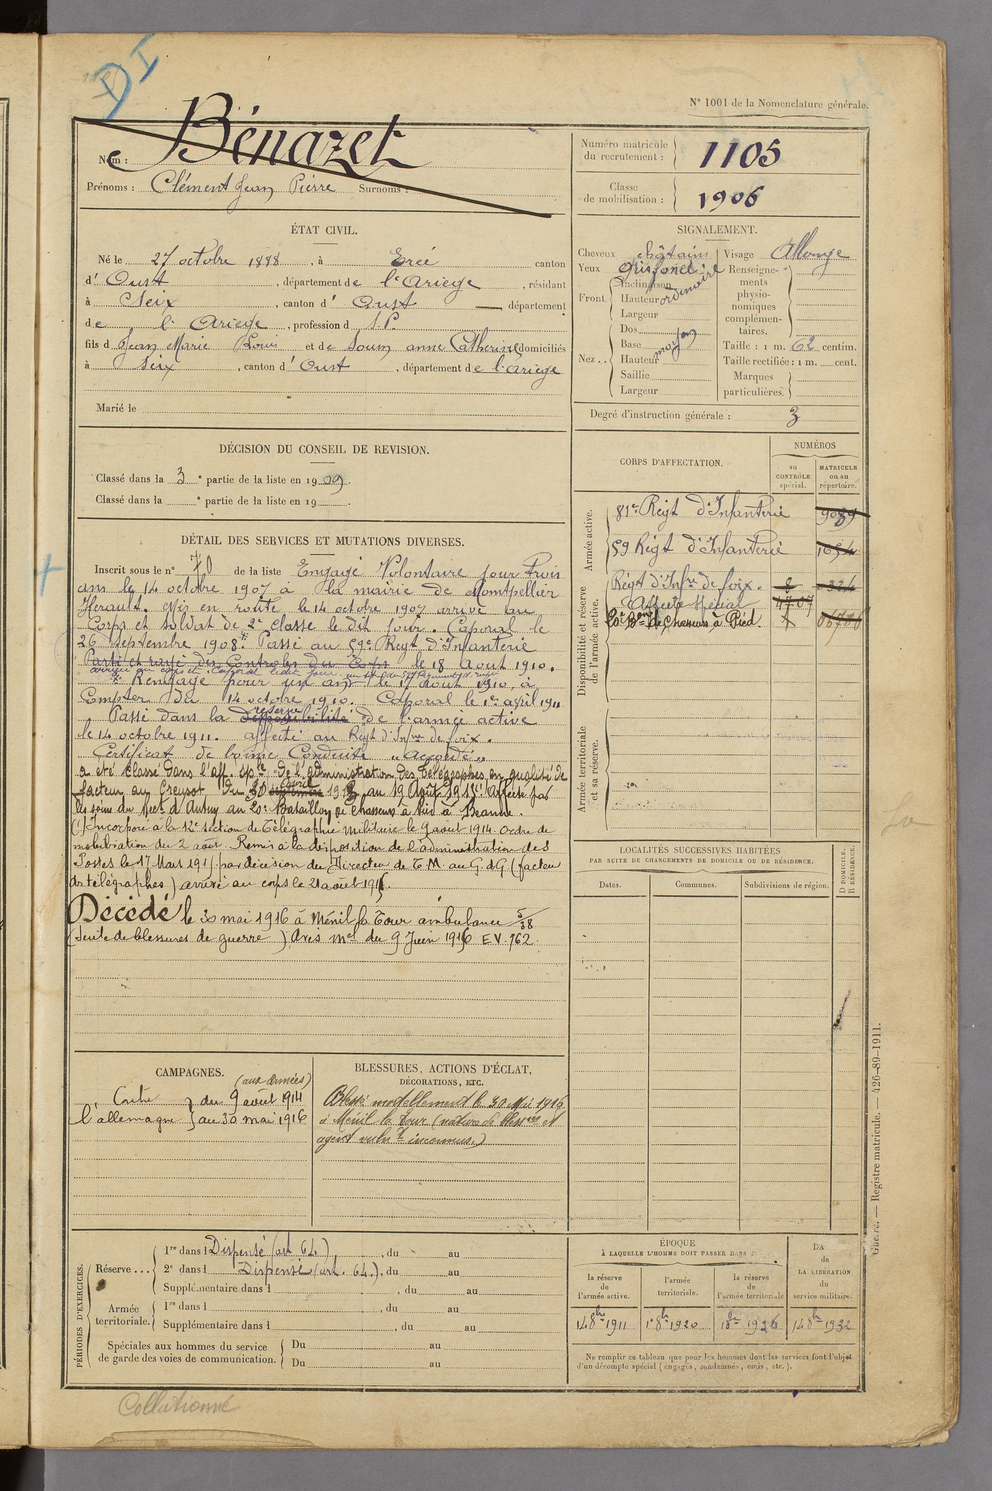 DI
N° 1001 de la Nomenclature générale.
Nom : Bénazet
Prénoms : Clément Jean Pierre Surnoms :
Numéro matricule du recrutement : 1105
Classe de mobilisation : 1906
ÉTAT CIVIL.
Né le 27 octobre 1888, à Ercé canton
d' Oust, département de l'Ariège, résidant
à Seix, canton d' Oust département
de l'Ariège, profession d S.P.
fils d Jean Marie Louis et de Soum anne Catherine domiciliés
à Seix, canton d' Oust, département de l'Ariège
Marié le
SIGNALEMENT.
Cheveux châtains
Yeux gris foncé
Front. Inclinaison
Hauteur ordinaire
Largeur
Nez.. Dos
Base moyen
Hauteur
Saillie
Largeur
Visage Allongé
Renseignements physionomiques complémentaires.
Taille : 1 m. 62 centim.
Taille rectifiée : 1 m. cent.
Marques particulières.
Degré d'instruction générale : 3
DÉCISION DU CONSEIL DE REVISION.
Classé dans la 3e partie de la liste en 1909.
Classé dans la e partie de la liste en 19
DÉTAIL DES SERVICES ET MUTATIONS DIVERSES.
Inscrit sous le n° 70 de la liste Engagé Volontaire pour Trois
ans le 14 octobre 1907 à la mairie de Montpellier
Hérault. Mis en route le 14 octobre 1907 arrivé au
Corps et soldat de 2e classe le dit jour. Caporal le
26 septembre 1908. Passé au 59e Régt d'Infanterie
Parti et rayé des Controles du Corps le 18 Août 1910.
Rengagé pour un an le 17 Août 1910, à
Compter du 14 octobre 1910. Caporal le 1er avril 1911
Passé dans la disponibilité réserve de l'armée active
le 14 octobre 1911. affecté au Régt d'Infrie de foix.
Certificat de bonne Conduite "Accordé"
a été classé dans l'aff. sple de l'administration des Télégraphes en qualité de
facteur au Creusot du 30 septembre avril 1913 au 19 Août 1913. Affecté par
les soins du Rect d'Autun au 20e Bataillon de Chasseurs à Pied à Beaune.
(1) Incorporé à la 12e section de Télégraphie militaire le 9 août 1914. Ordre de
mobilisation du 2 août. Remis à la disposition de l'administration des
Postes le 17 Mars 1915 par décision du Directeur de T.M. au G.Q.G. (facteur
des télégraphes) arrivé au corps le 21 août 1915.
Décédé le 30 mai 1916 à Ménil la Tour ambulance 5/38
(Suite de blessures de guerre) Avis mel du 9 Juin 1916 E.V. 762.
CORPS D'AFFECTATION.
NUMÉROS
au CONTRÔLE spécial.
MATRICULE ou au répertoire.
Armée active.
81e Régt d'Infanterie 9089
59 Régt d'Infanterie 1654
Disponibilité et réserve de l'armée active.
Régt d'Infrie de foix. 8 324
Affecté Spécial 4707
20e Bon de Chasseurs à Pied.
Armée territoriale et sa réserve.
LOCALITÉS SUCCESSIVES HABITÉES
PAR SUITE DE CHANGEMENTS DE DOMICILE OU DE RÉSIDENCE.
Dates. Communes. Subdivisions de région. D DOMICILE. R RÉSIDENCE.
CAMPAGNES.
(aux armées)
Contre l'allemagne } du 9 août 1914
au 30 mai 1916
BLESSURES, ACTIONS D'ÉCLAT,
DÉCORATIONS, ETC.
Blessé mortellement le 30 Mai 1916
à Ménil la Tour (nature de blessures et
agent vulnt inconnus.)
PÉRIODES D'EXERCICES.
Réserve... 1re dans l Dispensé (art 64.), du au
2e dans l Dispensé (art. 64.), du au
Supplémentaire dans l , du au
Armée territoriale. 1re dans l , du au
Supplémentaire dans l , du au
Spéciales aux hommes du service de garde des voies de communication. Du au
Du au
ÉPOQUE
À LAQUELLE L'HOMME DOIT PASSER DANS
la réserve de l'armée active.
l'armée territoriale.
la réserve de l'armée territoriale
DATE de LA LIBÉRATION du service militaire.
14 8bre 1911 1er 8bre 1920 18bre 1926 14 8bre 1932
Ne remplir ce tableau que pour les hommes dont les services font l'objet
d'un décompte spécial (engagés, condamnés, omis, etc.).
Guerre. — Registre matricule. — 426-89-1911.
Collationné